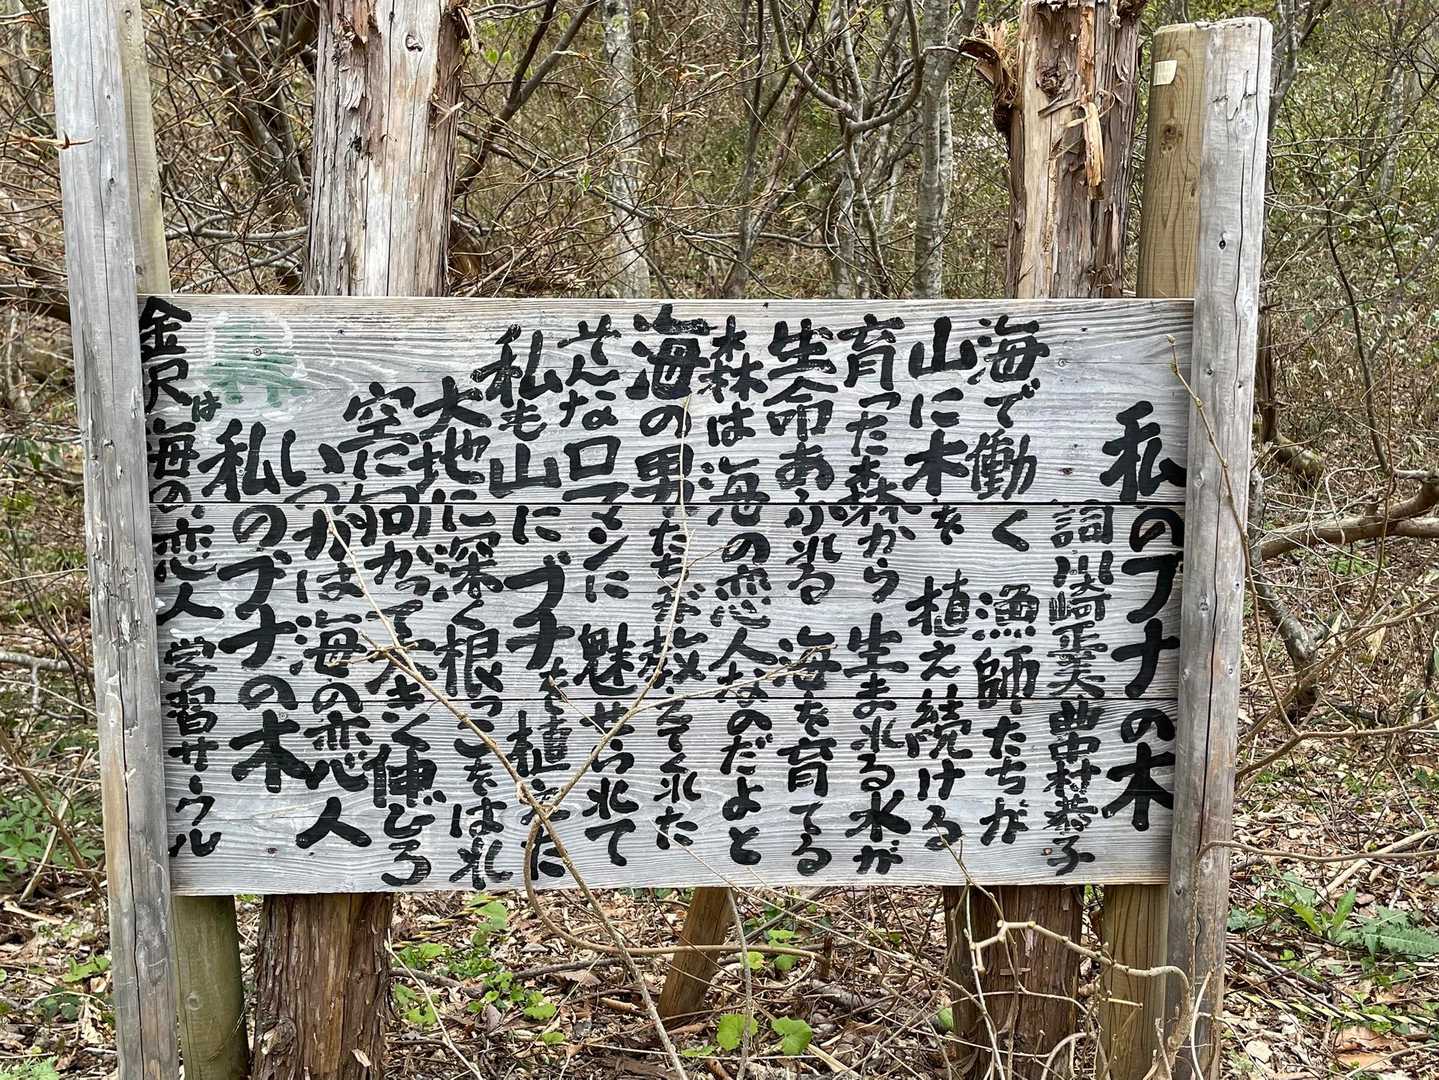 私のブナの木
詞 川崎正美 曲 中村恭子
海で働く 漁師たちが
山に木を 植え続ける
育った森から 生まれる水が
生命あふれる 海を育てる
森は海の恋人なのだよと
海の男たちが教えてくれた
そんなロマンに 魅せられて
私も山に ブナを植えた
大地に深く根っこをはれ
空に向かって大きく伸びろ
いつかは海の恋人
私のブナの木
金沢は海の恋人 学習サークル